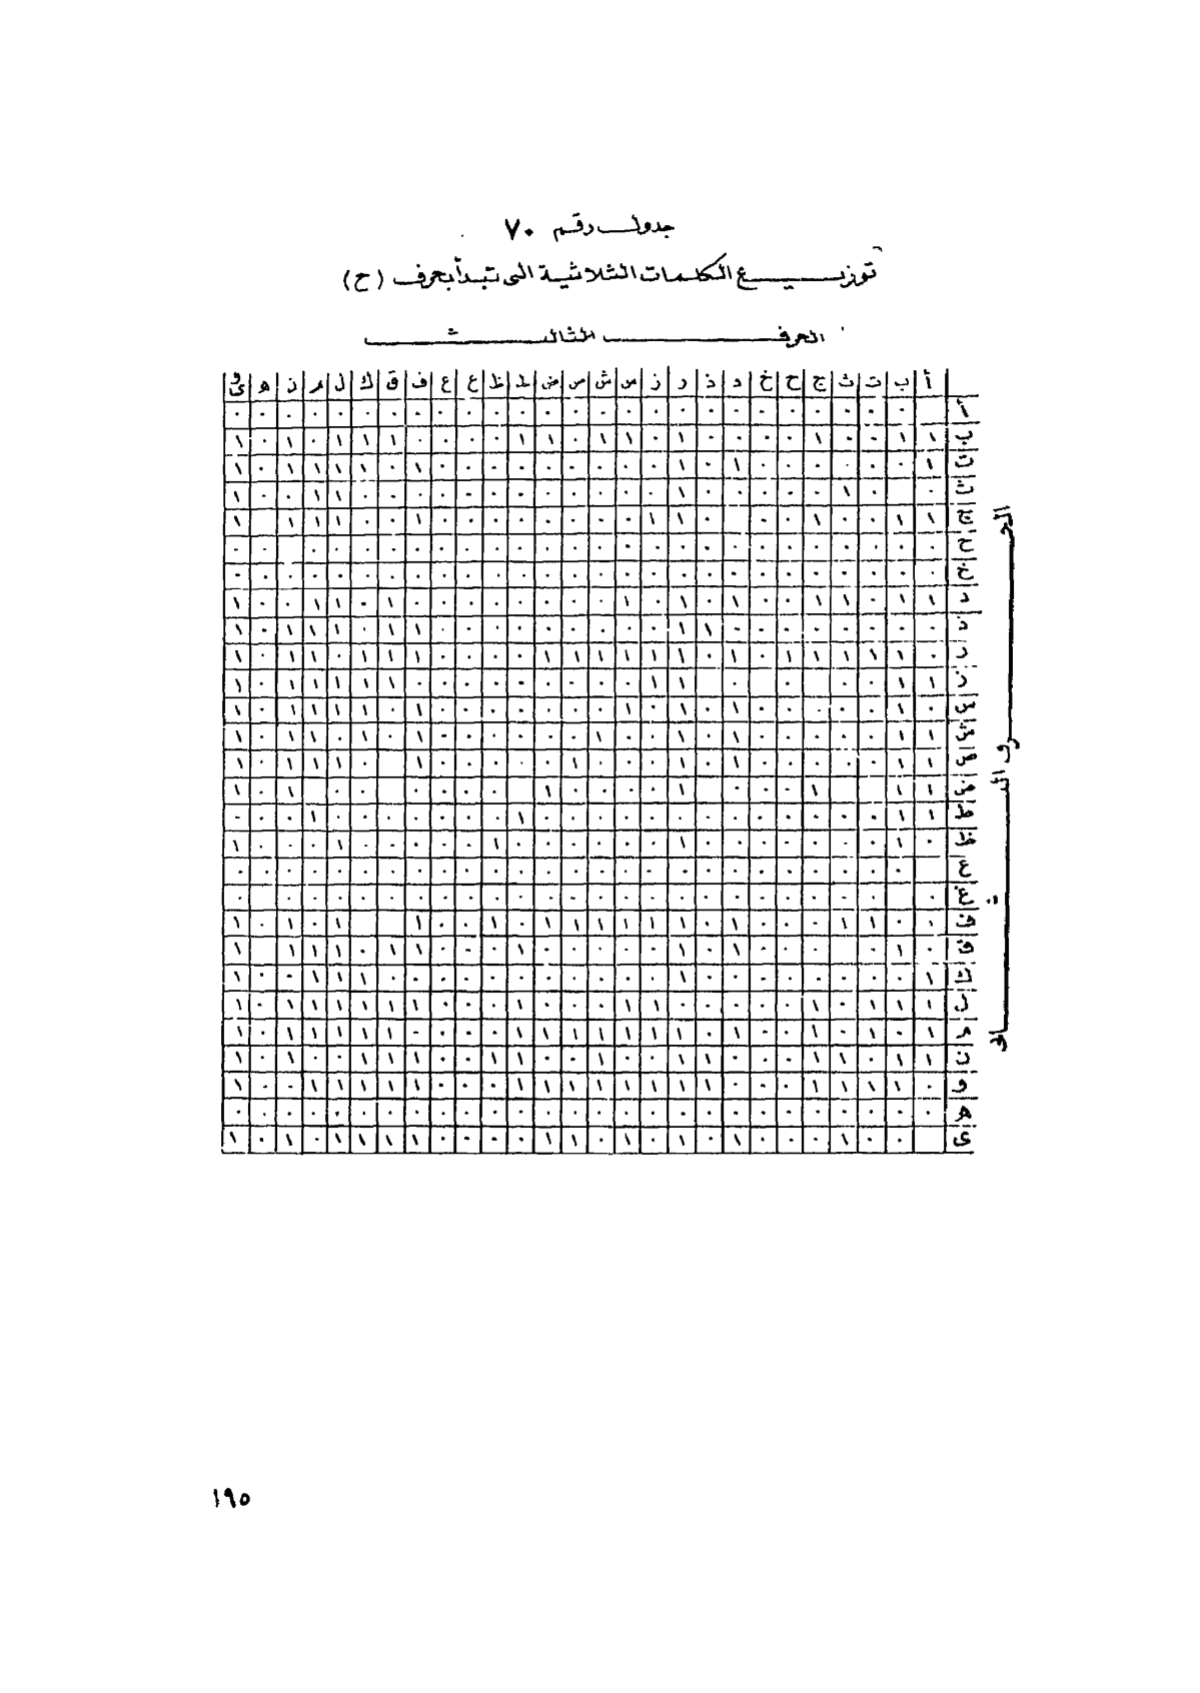 جدول رقم ٧٠
توزيع الكلمات الثلاثية التى تبدأ بحرف (ح)
الحرف الثالث
أ ب ت ث ج ح خ د ذ ر ز س ش ص ض ط ظ ع غ ف ق ك ل م ن ه و ى
الحرف الثانى
أ ٠ ٠ ٠ ٠ ٠ ٠ ٠ ٠ ٠ ٠ ٠ ٠ ٠ ٠ ٠ ٠ ٠ ٠ ٠ ٠ ٠ ٠ ٠ ٠ ٠ ٠
ب ١ ١ ٠ ٠ ١ ٠ ٠ ٠ ٠ ١ ٠ ١ ١ ٠ ١ ١ ٠ ٠ ٠ ٠ ١ ١ ١ ٠ ١ ٠ ١
ت ١ ٠ ٠ ٠ ٠ ٠ ٠ ١ ٠ ١ ٠ ٠ ٠ ٠ ٠ ٠ ٠ ٠ ٠ ١ ٠ ١ ١ ١ ١ ٠ ١
ث ٠ ٠ ١ ٠ ٠ ٠ ٠ ٠ ١ ٠ ٠ ٠ ٠ ٠ ٠ ٠ ٠ ٠ ٠ ٠ ٠ ١ ١ ٠ ٠ ١
ج ١ ١ ٠ ٠ ١ ٠ ٠ ٠ ١ ١ ٠ ٠ ٠ ٠ ٠ ٠ ٠ ٠ ١ ٠ ٠ ١ ١ ١ ١
ح ٠ ٠ ٠ ٠ ٠ ٠ ٠ ٠ ٠ ٠ ٠ ٠ ٠ ٠ ٠ ٠ ٠ ٠ ٠ ٠ ٠ ٠ ٠ ٠ ٠ ٠
خ ٠ ٠ ٠ ٠ ٠ ٠ ٠ ٠ ٠ ٠ ٠ ٠ ٠ ٠ ٠ ٠ ٠ ٠ ٠ ٠ ٠ ٠ ٠ ٠ ٠ ٠ ٠
د ١ ١ ٠ ١ ١ ٠ ٠ ١ ٠ ١ ٠ ١ ٠ ٠ ٠ ٠ ٠ ٠ ٠ ٠ ١ ٠ ١ ١ ٠ ٠ ١
ذ ٠ ٠ ٠ ٠ ٠ ٠ ٠ ٠ ١ ١ ٠ ٠ ٠ ٠ ٠ ٠ ٠ ٠ ١ ١ ٠ ١ ١ ١ ٠ ١
ر ٠ ١ ١ ١ ١ ١ ٠ ١ ٠ ١ ١ ١ ١ ١ ١ ٠ ٠ ٠ ٠ ١ ١ ١ ٠ ١ ١ ٠ ١
ز ١ ١ ٠ ٠ ٠ ٠ ١ ١ ٠ ٠ ٠ ٠ ٠ ٠ ٠ ٠ ٠ ١ ١ ١ ١ ١ ٠ ١
س ١ ١ ٠ ٠ ٠ ٠ ٠ ١ ٠ ١ ٠ ١ ٠ ٠ ٠ ٠ ٠ ٠ ٠ ١ ٠ ١ ١ ١ ١ ٠ ١
ش ١ ١ ٠ ٠ ٠ ٠ ٠ ١ ٠ ١ ٠ ٠ ١ ٠ ٠ ٠ ٠ ٠ ٠ ١ ٠ ١ ٠ ١ ١ ٠ ١
ص ١ ١ ٠ ٠ ٠ ٠ ٠ ١ ٠ ١ ٠ ٠ ٠ ١ ٠ ٠ ٠ ٠ ٠ ١ ٠ ١ ١ ١ ٠ ١
ض ١ ١ ١ ٠ ٠ ٠ ٠ ١ ٠ ٠ ٠ ٠ ١ ٠ ٠ ٠ ٠ ٠ ٠ ٠ ٠ ١ ٠ ١
ط ١ ١ ٠ ٠ ٠ ٠ ٠ ٠ ٠ ٠ ٠ ٠ ٠ ٠ ٠ ١ ٠ ٠ ٠ ٠ ٠ ٠ ٠ ١ ٠ ٠ ٠
ظ ٠ ١ ٠ ٠ ٠ ٠ ٠ ٠ ٠ ١ ٠ ٠ ٠ ٠ ٠ ٠ ١ ٠ ٠ ٠ ٠ ٠ ١ ٠ ٠ ٠ ١
ع ٠ ٠ ٠ ٠ ٠ ٠ ٠ ٠ ٠ ٠ ٠ ٠ ٠ ٠ ٠ ٠ ٠ ٠ ٠ ٠ ٠ ٠ ٠ ٠ ٠ ٠
غ ٠ ٠ ٠ ٠ ٠ ٠ ٠ ٠ ٠ ٠ ٠ ٠ ٠ ٠ ٠ ٠ ٠ ٠ ٠ ٠ ٠ ٠ ٠ ٠ ٠ ٠ ٠
ف ٠ ٠ ١ ١ ٠ ٠ ٠ ١ ٠ ١ ١ ١ ١ ١ ١ ٠ ١ ٠ ٠ ١ ١ ٠ ١ ٠ ١
ق ٠ ١ ٠ ٠ ٠ ٠ ١ ٠ ١ ٠ ٠ ٠ ٠ ٠ ١ ٠ ٠ ٠ ١ ١ ٠ ١ ١ ١ ١
ك ١ ٠ ٠ ٠ ٠ ٠ ٠ ٠ ٠ ١ ٠ ٠ ٠ ٠ ٠ ٠ ٠ ٠ ٠ ٠ ٠ ١ ١ ١ ٠ ٠ ١
ل ١ ١ ١ ٠ ١ ٠ ٠ ٠ ٠ ٠ ١ ١ ٠ ٠ ٠ ١ ٠ ٠ ٠ ١ ١ ١ ١ ١ ١ ٠ ١
م ١ ٠ ١ ٠ ١ ٠ ٠ ١ ٠ ١ ١ ١ ١ ١ ١ ١ ٠ ٠ ٠ ٠ ١ ١ ١ ١ ١ ٠ ١
ن ١ ١ ٠ ١ ١ ٠ ٠ ٠ ١ ١ ٠ ٠ ١ ٠ ٠ ١ ١ ٠ ٠ ١ ١ ١ ٠ ٠ ١ ٠ ١
و ٠ ١ ١ ١ ١ ٠ ٠ ٠ ١ ١ ١ ١ ١ ١ ١ ١ ٠ ٠ ٠ ١ ١ ١ ١ ١ ٠ ٠ ١
ه ٠ ٠ ٠ ٠ ٠ ٠ ٠ ٠ ٠ ٠ ٠ ٠ ٠ ٠ ٠ ٠ ٠ ٠ ٠ ٠ ٠ ٠ ٠ ٠ ٠ ٠ ٠
ى ٠ ٠ ١ ٠ ٠ ٠ ١ ٠ ١ ٠ ١ ٠ ١ ١ ٠ ٠ ٠ ٠ ١ ١ ١ ١ ٠ ١ ٠ ١
١٩٥